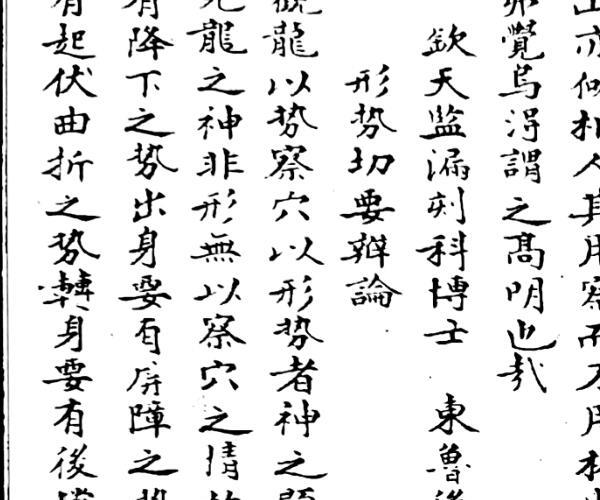 亦似相人其用察而不用相
覺烏得謂之高明也哉
欽天監漏刻科博士 東魯後
形勢切要辯論
觀龍以勢察穴以形勢者神之顯
龍之神非形無以察穴之情故
有降下之勢出身要有屏障之勢
有起伏曲折之勢轉身要有後